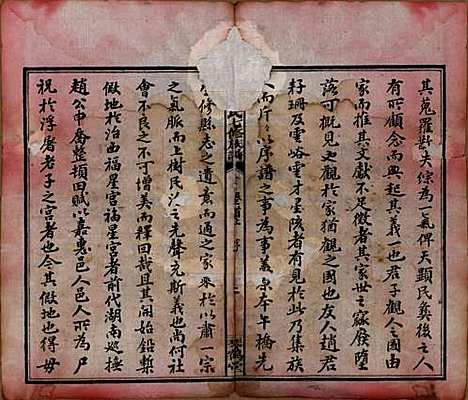 其蒐羅對失綜為一氣俾天顯民彝後之人
有所顧念而興起其義一也君子觀人之國由
家而推其文獻不足徵者其家世之寖假墮
落可概見之觀於家猶觀之國也友人趙君
籽珊及雲峪雲才星陔者有見於此乃集族
人而斤以序譜之事為事義泉本午橋先
修縣志之遺意而通之家乘於以肅一宗
之氣脈而上樹民治之先聲克斯義也尚何社
會不良之不可增美而釋回哉且其開始鉛槧
做地於治西福星宮福星宮者前代湖南巡撫
趙公申喬整頓田賦以嘉惠邑人邑人所為尸
祝於浮屠老子之宮者也今其做地也得毋